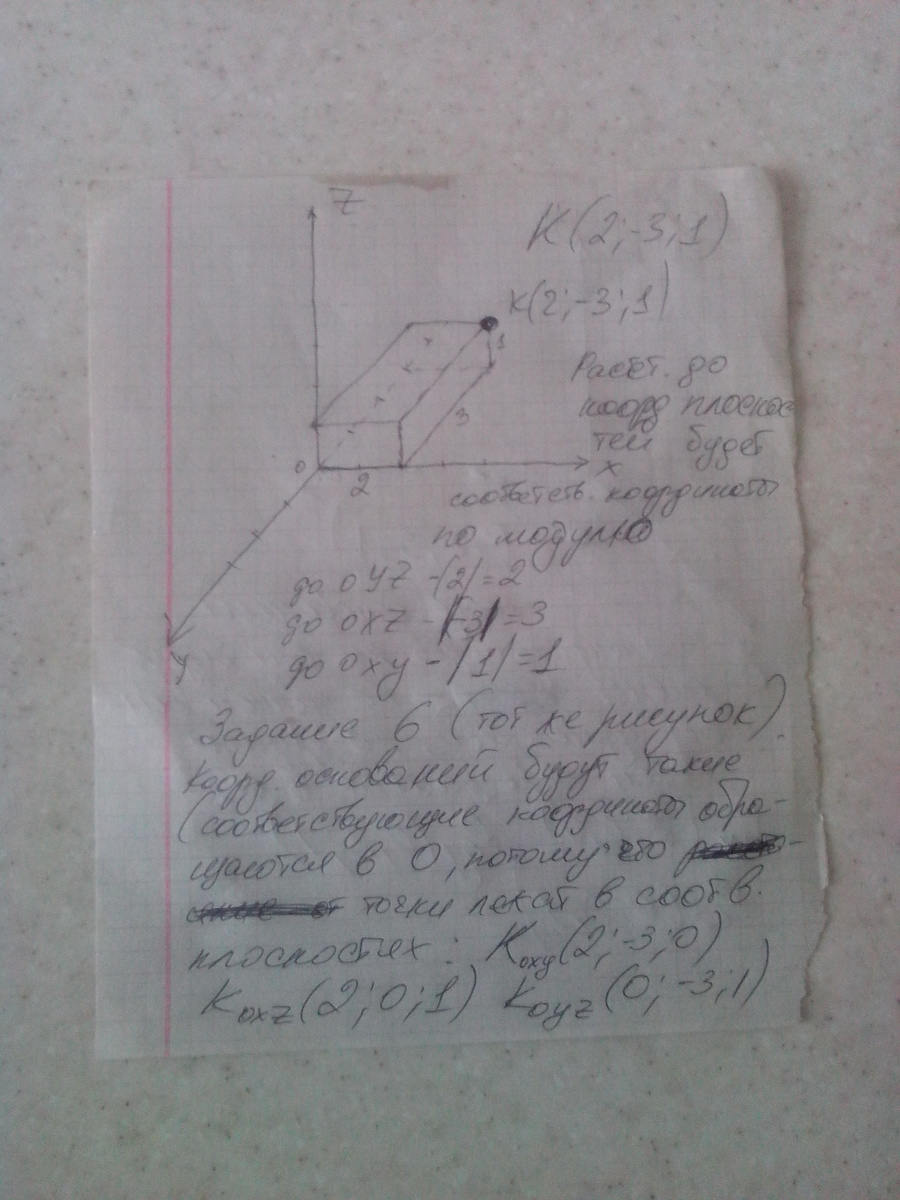 Z
K(2;-3;1)
K(2;-3;1)
1
Расст. до
коорд плоскос
тей будет
3
0
2
x
соответств. координаты
по модулю
до 0YZ -|2|=2
до 0XZ -|-3|=3
до 0xy - |1|=1
y
Задание 6 (тот же рисунок).
Коорд. оснований будут такие
(соответствующие координаты обра-
щаются в 0, потому что
точки лежат в соотв.
плоскостях: Koxy(2;-3;0)
Koxz(2;0;1) Koyz(0;-3;1)